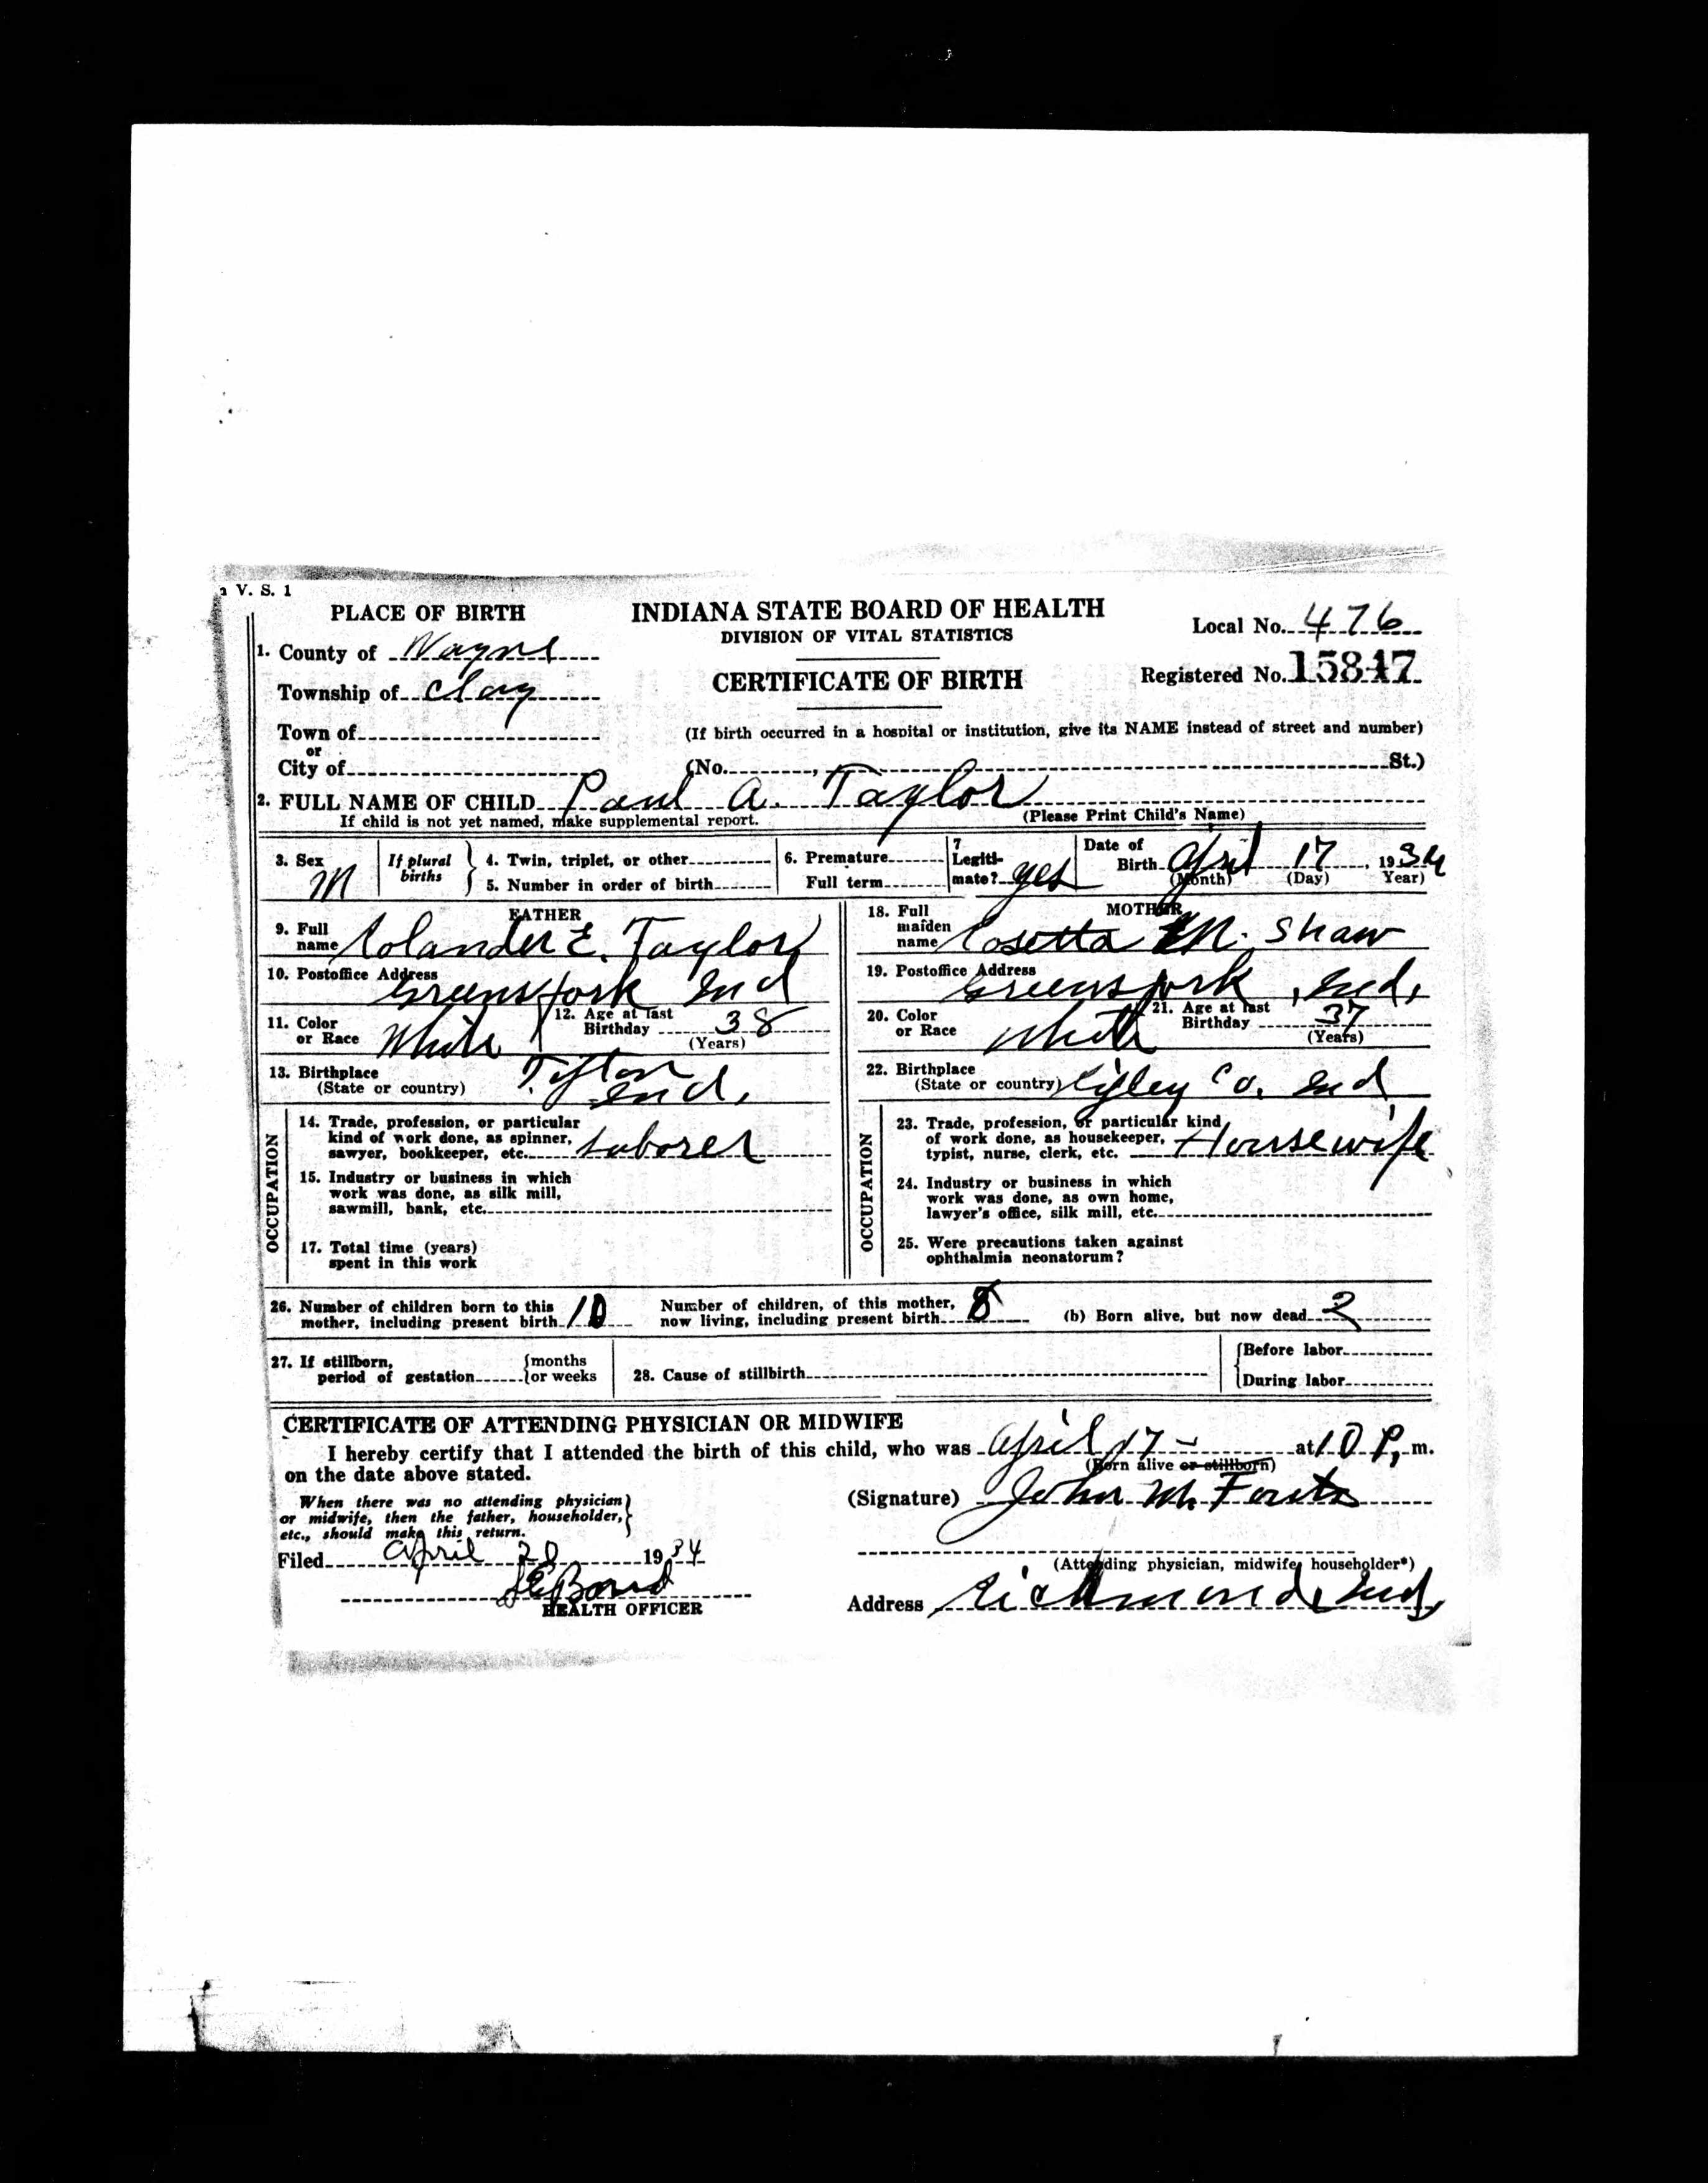 V. S. 1
PLACE OF BIRTH
1. County of Wayne
Township of Clay
Town of
or
City of
INDIANA STATE BOARD OF HEALTH
DIVISION OF VITAL STATISTICS
CERTIFICATE OF BIRTH
Local No. 476
Registered No. 15847
(If birth occurred in a hospital or institution, give its NAME instead of street and number)
(No. , St.)
2. FULL NAME OF CHILD Paul A. Taylor
If child is not yet named, make supplemental report. (Please Print Child's Name)
3. Sex M
If plural births
4. Twin, triplet, or other
5. Number in order of birth
6. Premature
Full term
7 Legiti-
mate? yes
Date of
Birth April 17, 1934
(Month) (Day) Year)
FATHER
9. Full
name E. Taylor
10. Postoffice Address
Greensfork Ind
11. Color
or Race White
12. Age at last
Birthday 38
(Years)
13. Birthplace
(State or country) Ind.
OCCUPATION
14. Trade, profession, or particular
kind of work done, as spinner,
sawyer, bookkeeper, etc. Laborer
15. Industry or business in which
work was done, as silk mill,
sawmill, bank, etc.
17. Total time (years)
spent in this work
MOTHER
18. Full
maiden
name M. Shaw
19. Postoffice Address
Greensfork, Ind.
20. Color
or Race White
21. Age at last
Birthday 37
(Years)
22. Birthplace
(State or country) Ripley Co. Ind
OCCUPATION
23. Trade, profession, or particular kind
of work done, as housekeeper,
typist, nurse, clerk, etc. Housewife
24. Industry or business in which
work was done, as own home,
lawyer's office, silk mill, etc.
25. Were precautions taken against
ophthalmia neonatorum?
26. Number of children born to this
mother, including present birth 10
Number of children, of this mother,
now living, including present birth 8
(b) Born alive, but now dead 2
27. If stillborn,
period of gestation
months
or weeks
28. Cause of stillbirth
Before labor
During labor
CERTIFICATE OF ATTENDING PHYSICIAN OR MIDWIFE
I hereby certify that I attended the birth of this child, who was April 17 - at 10 P. m.
(Born alive or stillborn)
on the date above stated.
When there was no attending physician
or midwife, then the father, householder,
etc., should make this return.
(Signature) John M. Fouts
(Attending physician, midwife, householder*)
Filed April 20 1934
HEALTH OFFICER
Address Richmond, Ind,